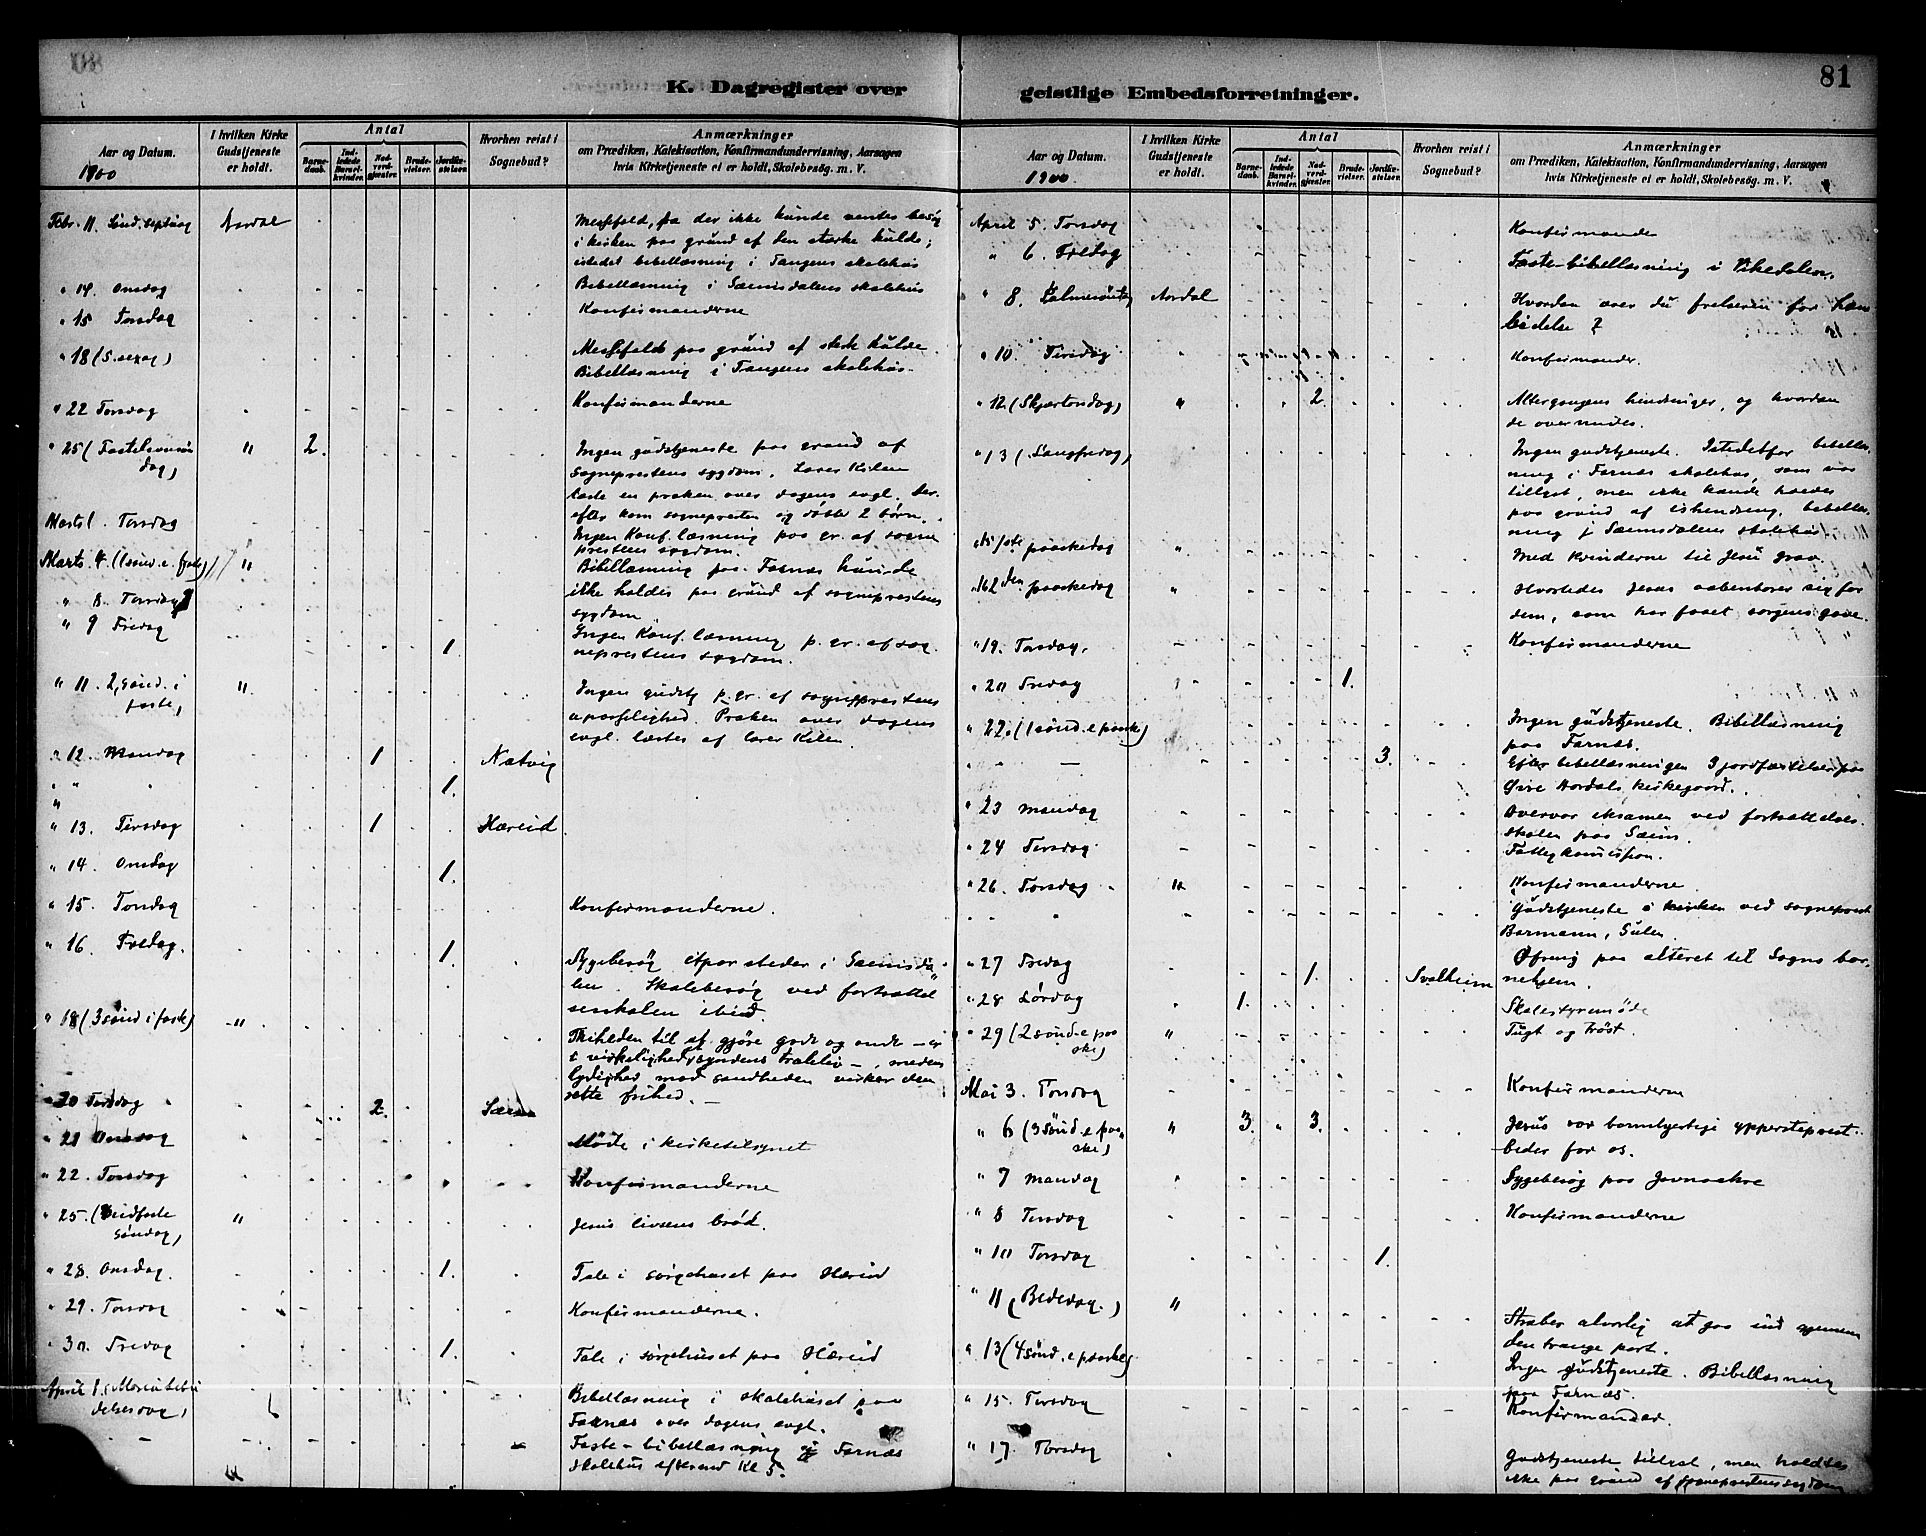 81
K. Dagregister over
geistlige Embedsforretninger.
Aar og Datum.
1900
I hvilken Kirke
Gudstjeneste
er holdt.
Antal
Barne-
daab.
Ind-
ledede
Barsel-
kvinder.
Nad-
verd-
gjester.
Brude-
vielser.
Jordfæ-
stelser.
Hvorhen reist i
Sognebud?
Anmærkninger
om Prædiken, Katekisation, Konfirmandundervisning, Aarsagen
hvis Kirketjeneste ei er holdt, Skolebesøg. m. V.
Febr. 11. Sønd. septuag Aardal Messefald, da der ikke kunde ventes besøg
i kirken paa grund af den stærke kulde;
istedet bibellæsning i Tangens skolehus
" 14. Onsdag Bibellæsning i Sæmsdalens skolehus
" 15 Torsdag Konfirmanderne
" 18 (S. sexag) Messefald paa grund af sterk kulde.
Bibellæsning i Tangens skolehus.
" 22 Torsdag Konfirmanderne
" 25 (Fastelavnssøn " 2. Ingen gudstjeneste paa grund af
dag) sogneprestens sygdom. Lærer Kilen
læste en præken over dagens evgl. Der-
efter kom sognepresten og døbte 2 børn.
Marts 1. Torsdag Ingen Konf. læsning paa gr. af sogne
prestens sygdom.
Marts 4 (1 sønd. e. faste) " Bibellæsning paa Farnæs kunde
" 8. Torsdag ikke holdes paa grund af sogneprestens
sygdom
" 9 Fredag 1. Ingen Konf. læsning p. gr. af sog
neprestens sygdom.
" 11. 2. sønd. i " Ingen gudstj p. gr. af sogneprestens
faste) upasselighed. Præken over dagens
evgl. læstes af lærer Kilen.
" 12. Mandag 1 Natvig
" " 1.
" 13. Tirsdag 1 Hæreid
" 14. Onsdag 1.
" 15. Torsdag Konfirmanderne.
" 16. Fredag. 1. Sygebesøg etpar steder i Sæmsda
len. Skolebesøg ved fortsættel
sesskolen ibid.
" 18 (3 sønd i faste) " Friheden til at gjøre godt og ondt – er
i virkelighed syndens trælleliv –, medens
lydighed mod sandheden virker den
rette frihed. –
" 20 Tirsdag 2. Sæm
" 21 Onsdag Møde i kirketilsynet
" 22. Torsdag Konfirmanderne
" 25. (Midfaste " Jesus livsens brød.
søndag)
" 28. Onsdag. 1. Tale i sørgehuset paa Hæreid
" 29. Torsdag Konfirmanderne.
" 30. Fredag 1. Tale i sørgehuset paa Hæreid
April 1. (Mariæ bebu Bibellæsning i skolehuset paa
delsesdag) Farnæs over dagens evgl.
– Faste-bibellæsning Farnæs
skolehus efterm. Kl 5.
Aar og Datum.
1900.
I hvilken Kirke
Gudstjeneste
er holdt.
Antal
Barne-
daab.
Ind-
ledede
Barsel-
kvinder.
Nad-
verd-
gjester.
Brude-
vielser.
Jordfæ-
stelser.
Hvorhen reist i
Sognebud?
Anmærkninger
om Prædiken, Katekisation, Konfirmandundervisning, Aarsagen
hvis Kirketjeneste ei er holdt, Skolebesøg. m. V.
April 5. Torsdag Konfirmande
" 6. Fredag Faste-bibellæsning i Vikedalen.
" 8. Palmesøndag Aardal Hvordan ærer du frelseren for hans
lidelse?
" 10. Tirsdag Konfirmander.
" 12 (Skjærtorsdag) " 2. Altergangens hindringer, og hvordan
de overvindes.
" 13 (Langfredag) Ingen gudstjeneste. Istedetfor bibellæs-
ning i Farnæs skolehus, som var
tillyst, men ikke kunde holdes
paa grund af ishindring, bibellæs-
ning i Sæmsdalens skolehus.
" 15 1ste paaskedag " Med kvinderne til Jesu grav.
" 16 2den paaskedag " Hvorledes Jesus aabenbarer sig for
dem, som har faaet sorgens gave.
" 19. Torsdag. Konfirmanderne
" 20 Fredag 1.
" 22. (1 sønd. e paaske) Ingen gudstjeneste. Bibellæsning
paa Farnæs.
" – 3. Efter bibellæsningen 3 jordfæstelser paa
Øvre Aardals kirkegaard.
" 23 Mandag Overvar eksamen ved fortsættelses-
skolen paa Sæm.
" 24 Tirsdag Fattigkomission.
" 26. Torsdag " Konfirmanderne.
Gudstjeneste i kirken ved sogneprest
Bormann, Gulen.
" 27 Fredag 1. Svalheim Ofring paa alteret til Sogns bar-
nehjem.
" 28 Lørdag 1. Skolestyremøde
" 29 (2 sønd. e paa " Tugt og trøst.
ske)
Mai 3. Torsdag Konfirmanderne
" 6 (3 sønd. e paa " 3. 3. Jesus vor barmhjertige ypperstepræst
ske) beder for os.
" 7 Mandag Sygebesøg paa
" 8 Tirsdag Konfirmanderne
" 10 Torsdag 1.
" 11 (Bededag.) " Stræber alvorlig at gaa ind gjennem
den trange port.
" 13 (4 sønd. e paaske) Ingen gudstjeneste. Bibellæsning
paa Farnæs.
" 15. Tirsdag Konfirmander.
" 17. Torsdag Gudstjeneste tillyst, men holdtes
ikke paa grund af sogneprestens sygdom